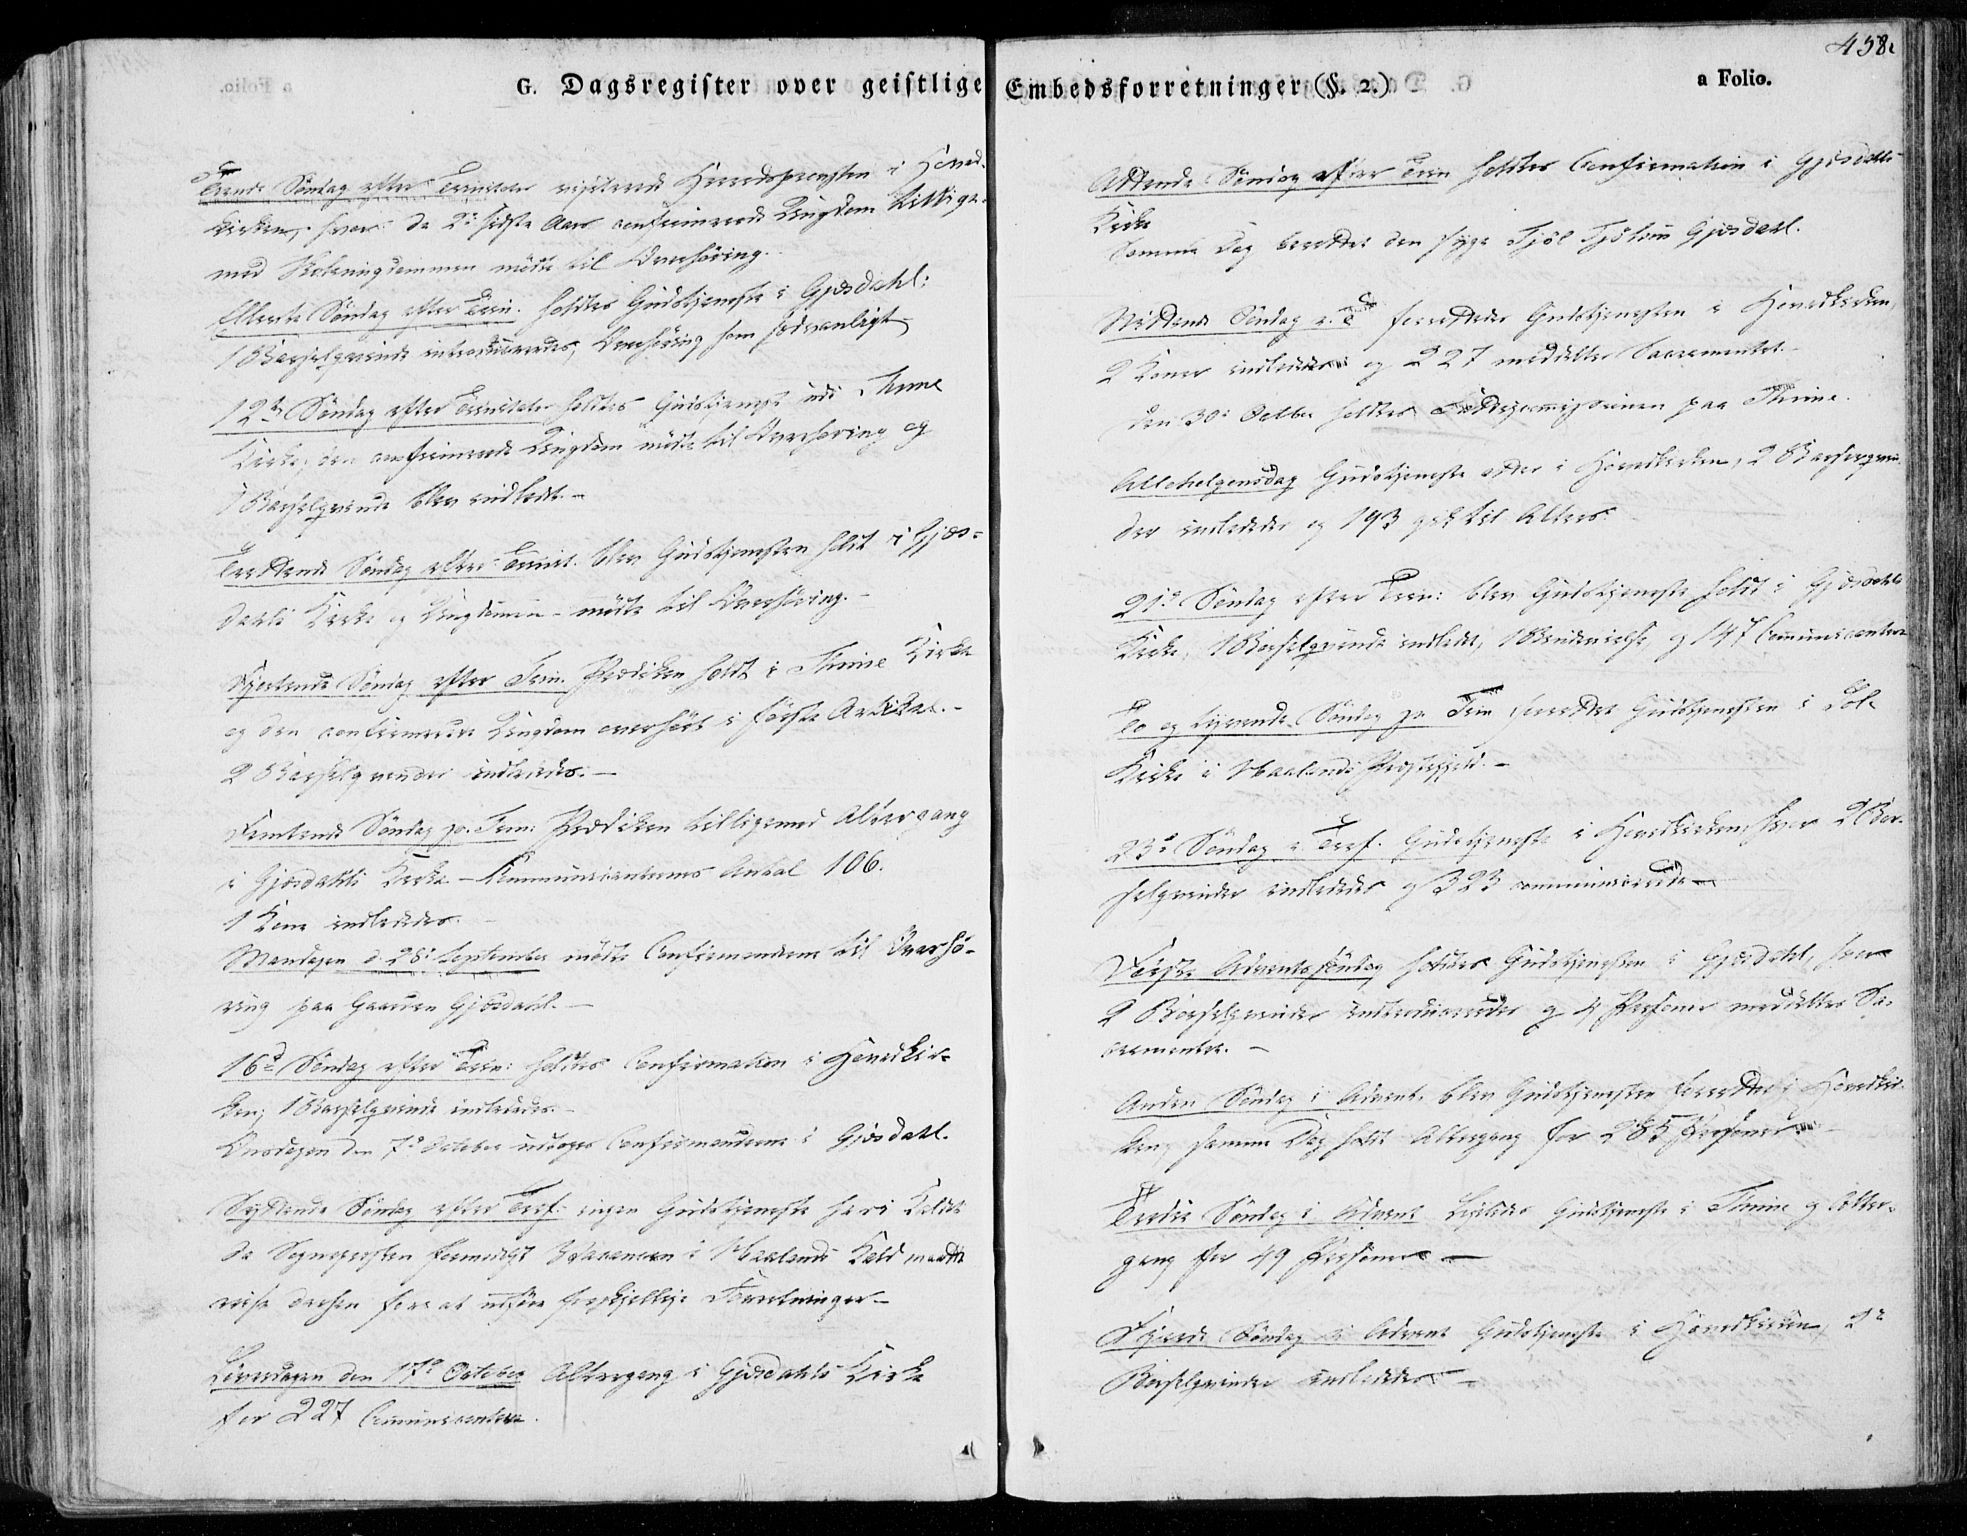 G. Dagsregister over geistlige Embedsforretninger (§. 2.)
a Folio.
458.
Tiende Søndag efter Trinitatis visiterede Herredsprovsten i Hoved-
kirken, hvor de 2de sidste Aars confirmerede Ungdom tillige-
med Skoleungdommen mødte til Overhøring.
Ellevte Søndag efter Trin. holdtes Gudstjeneste i Gjesdahl:
1 Barselqvinde introduceredes, Overhøring som sædvanligt
12te Søndag efter Trinitatis holdtes Gudstjenest udi Thime
Kirke, den confirmerede Ungdom mødte til Overhøring og
1 Barselqvinde blev indledt. -
Trettende Søndag efter Trinit. blev Gudstjenesten holdt i Gjes-
dahls Kirke og Ungdommen mødte til Overhøring. -
Fjortende Søndag efter Trin. Prædiken holdt i Thime Kirke
og den confirmerede Ungdom overhørt i første Artikel. -
2 Barselqvinder indlededes. -
Femtende Søndag p. Trin: Prædiken tilligemed Altergang
i Gjesdahls Kirke - Communicanternes Antal 106.
1 Kone indlededes.
Mandagen d. 28de September mødte Confirmanderne til Overhø-
ring paa Gaarden Gjesdahl. -
16de Søndag efter Trin: holdtes Confirmation i Hovedkir-
ken; 1 Barselqvinde indlededes. -
Onsdagen den 7de October Confirmanderne i Gjesdahl.
Syttende Søndag efter Tref. ingen Gudstjeneste her i Kaldet
da Sognepresten formedelst Vacancen i Haalands Kald maatte
reise dersen for at udføre forskjellige Forretninger -
Løverdagen den 17de October Altergang i Gjesdahls Kirke
for 227 Communicantere.
Attende Søndag efter Trin holdtes Confirmation i Gjesdahls
Kirke
Samme Dag berettet den syge Gjesdahl.
Nittende Søndag p. T forrettedes Gudstjenesten i Hovedkirken,
2 Koner indlededes og 227 meddeltes Sacramentet. -
den 30de Octbr holdtes paa Thime.
Allehelgensdag Gudstjeneste i Hovedkirken, 2 Barselqvin-
der indlededes og 193 gik til Alters.
21de Søndag efter Trin: blev Gudstjeneste holdt i Gjesdahls
Kirke, 1 Barselqvinde indledt, 1 Brudevielse og 147 Communicantere
To og tyvende Søndag p. Trin forrettet Gudstjenesten i Sole
Kirke i Haalands Præstegjeld. -
23de Søndag p. Tref. Gudstjeneste i Hovedkirken, hvor 2 Bar-
selqvinder indlededes og 323 communicerede -
Første Adventssøndag holdtes Gudstjenesten i Gjesdahl, hvor
2 Barselqvinder introduceredes og 4 Personer meddeltes Sa-
cramentet. -
Anden Søndag i Advent blev Gudstjenesten forrettet i Hovedkir-
ken, samme Dag holdt Altergang for 285 Personer -
Tredie Søndag i Advent holdtes Gudstjeneste i Thime og Alter-
gang for 49 Personer -
Fjerde Søndag i Advent Gudstjeneste i Hovedkirken, 2de
Barselqvinder indlededes -